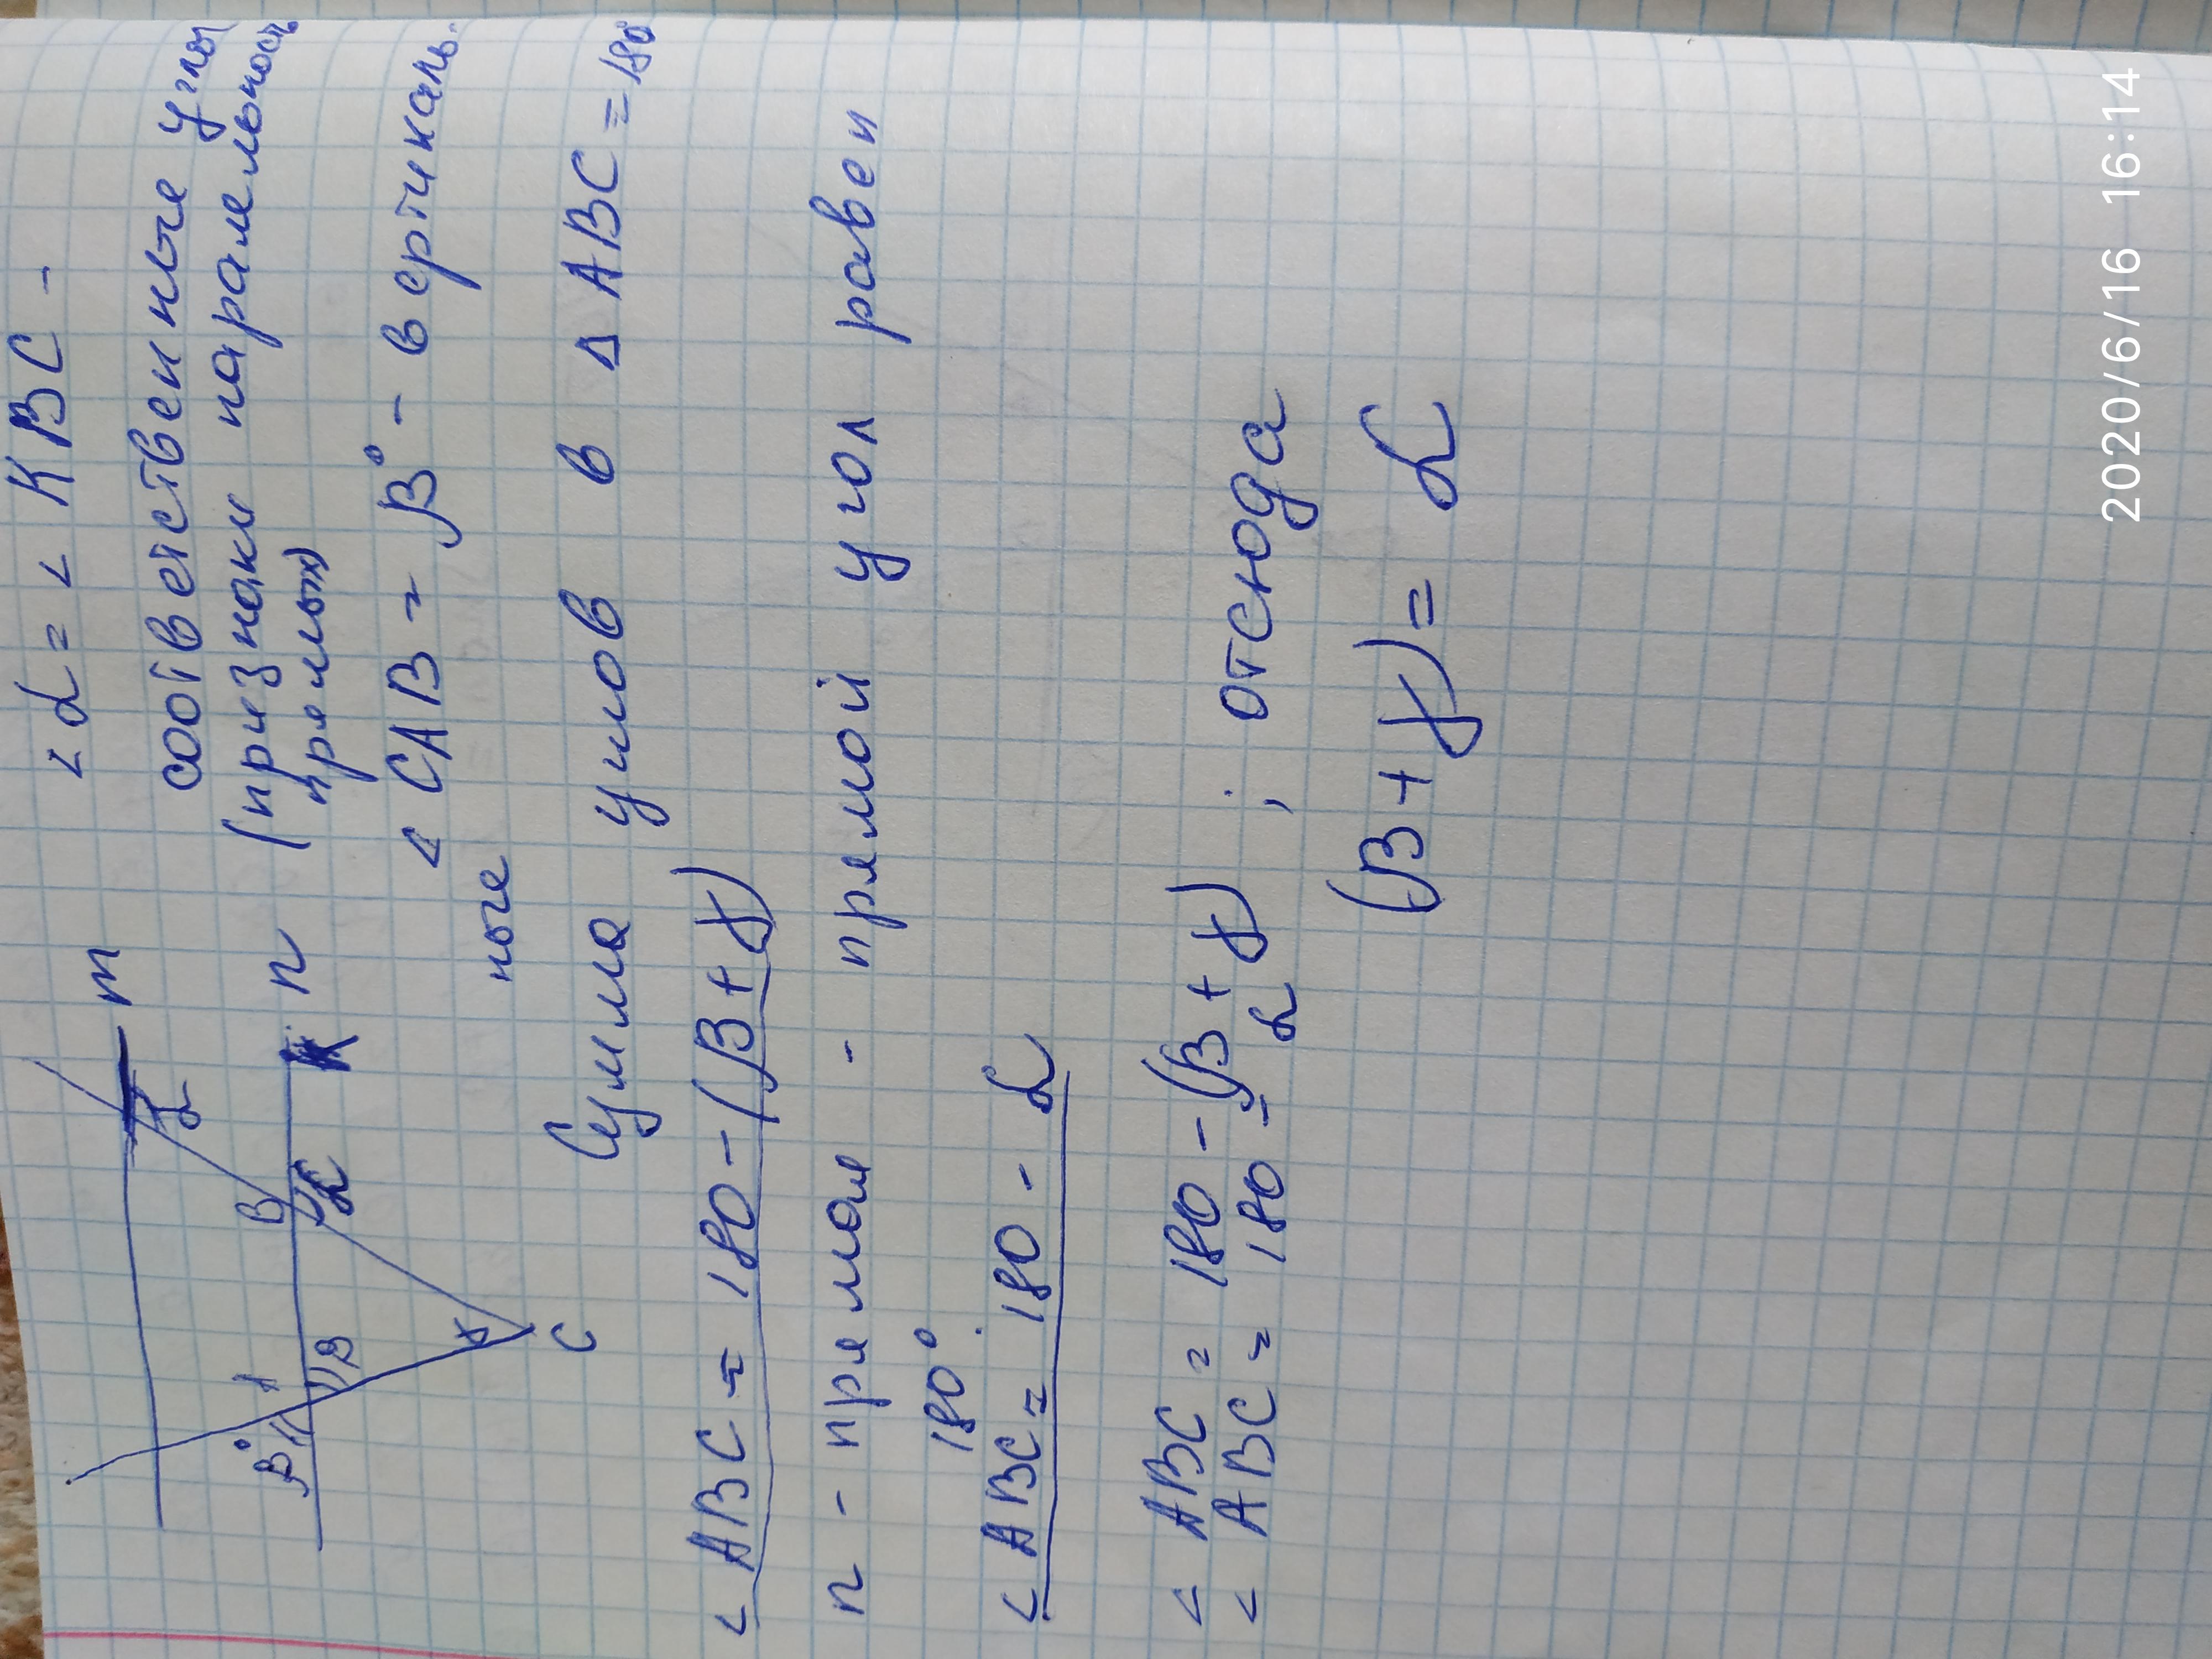 m
α
B
α
K
n
β°
A
β
γ
C
< α = < KBC -
соответственные углы
(признаки паралельность
прямых)
< CAB = β° - вертикаль-
ные
Сумма углов в Δ ABC = 180°
< ABC = 180 - (β + γ)
n - прямая - прямой угол равен
180°
< ABC = 180 - α
< ABC = 180 - (β + γ) ; отсюда
< ABC = 180 - α
(β + γ) = α
2020/6/16 16:14